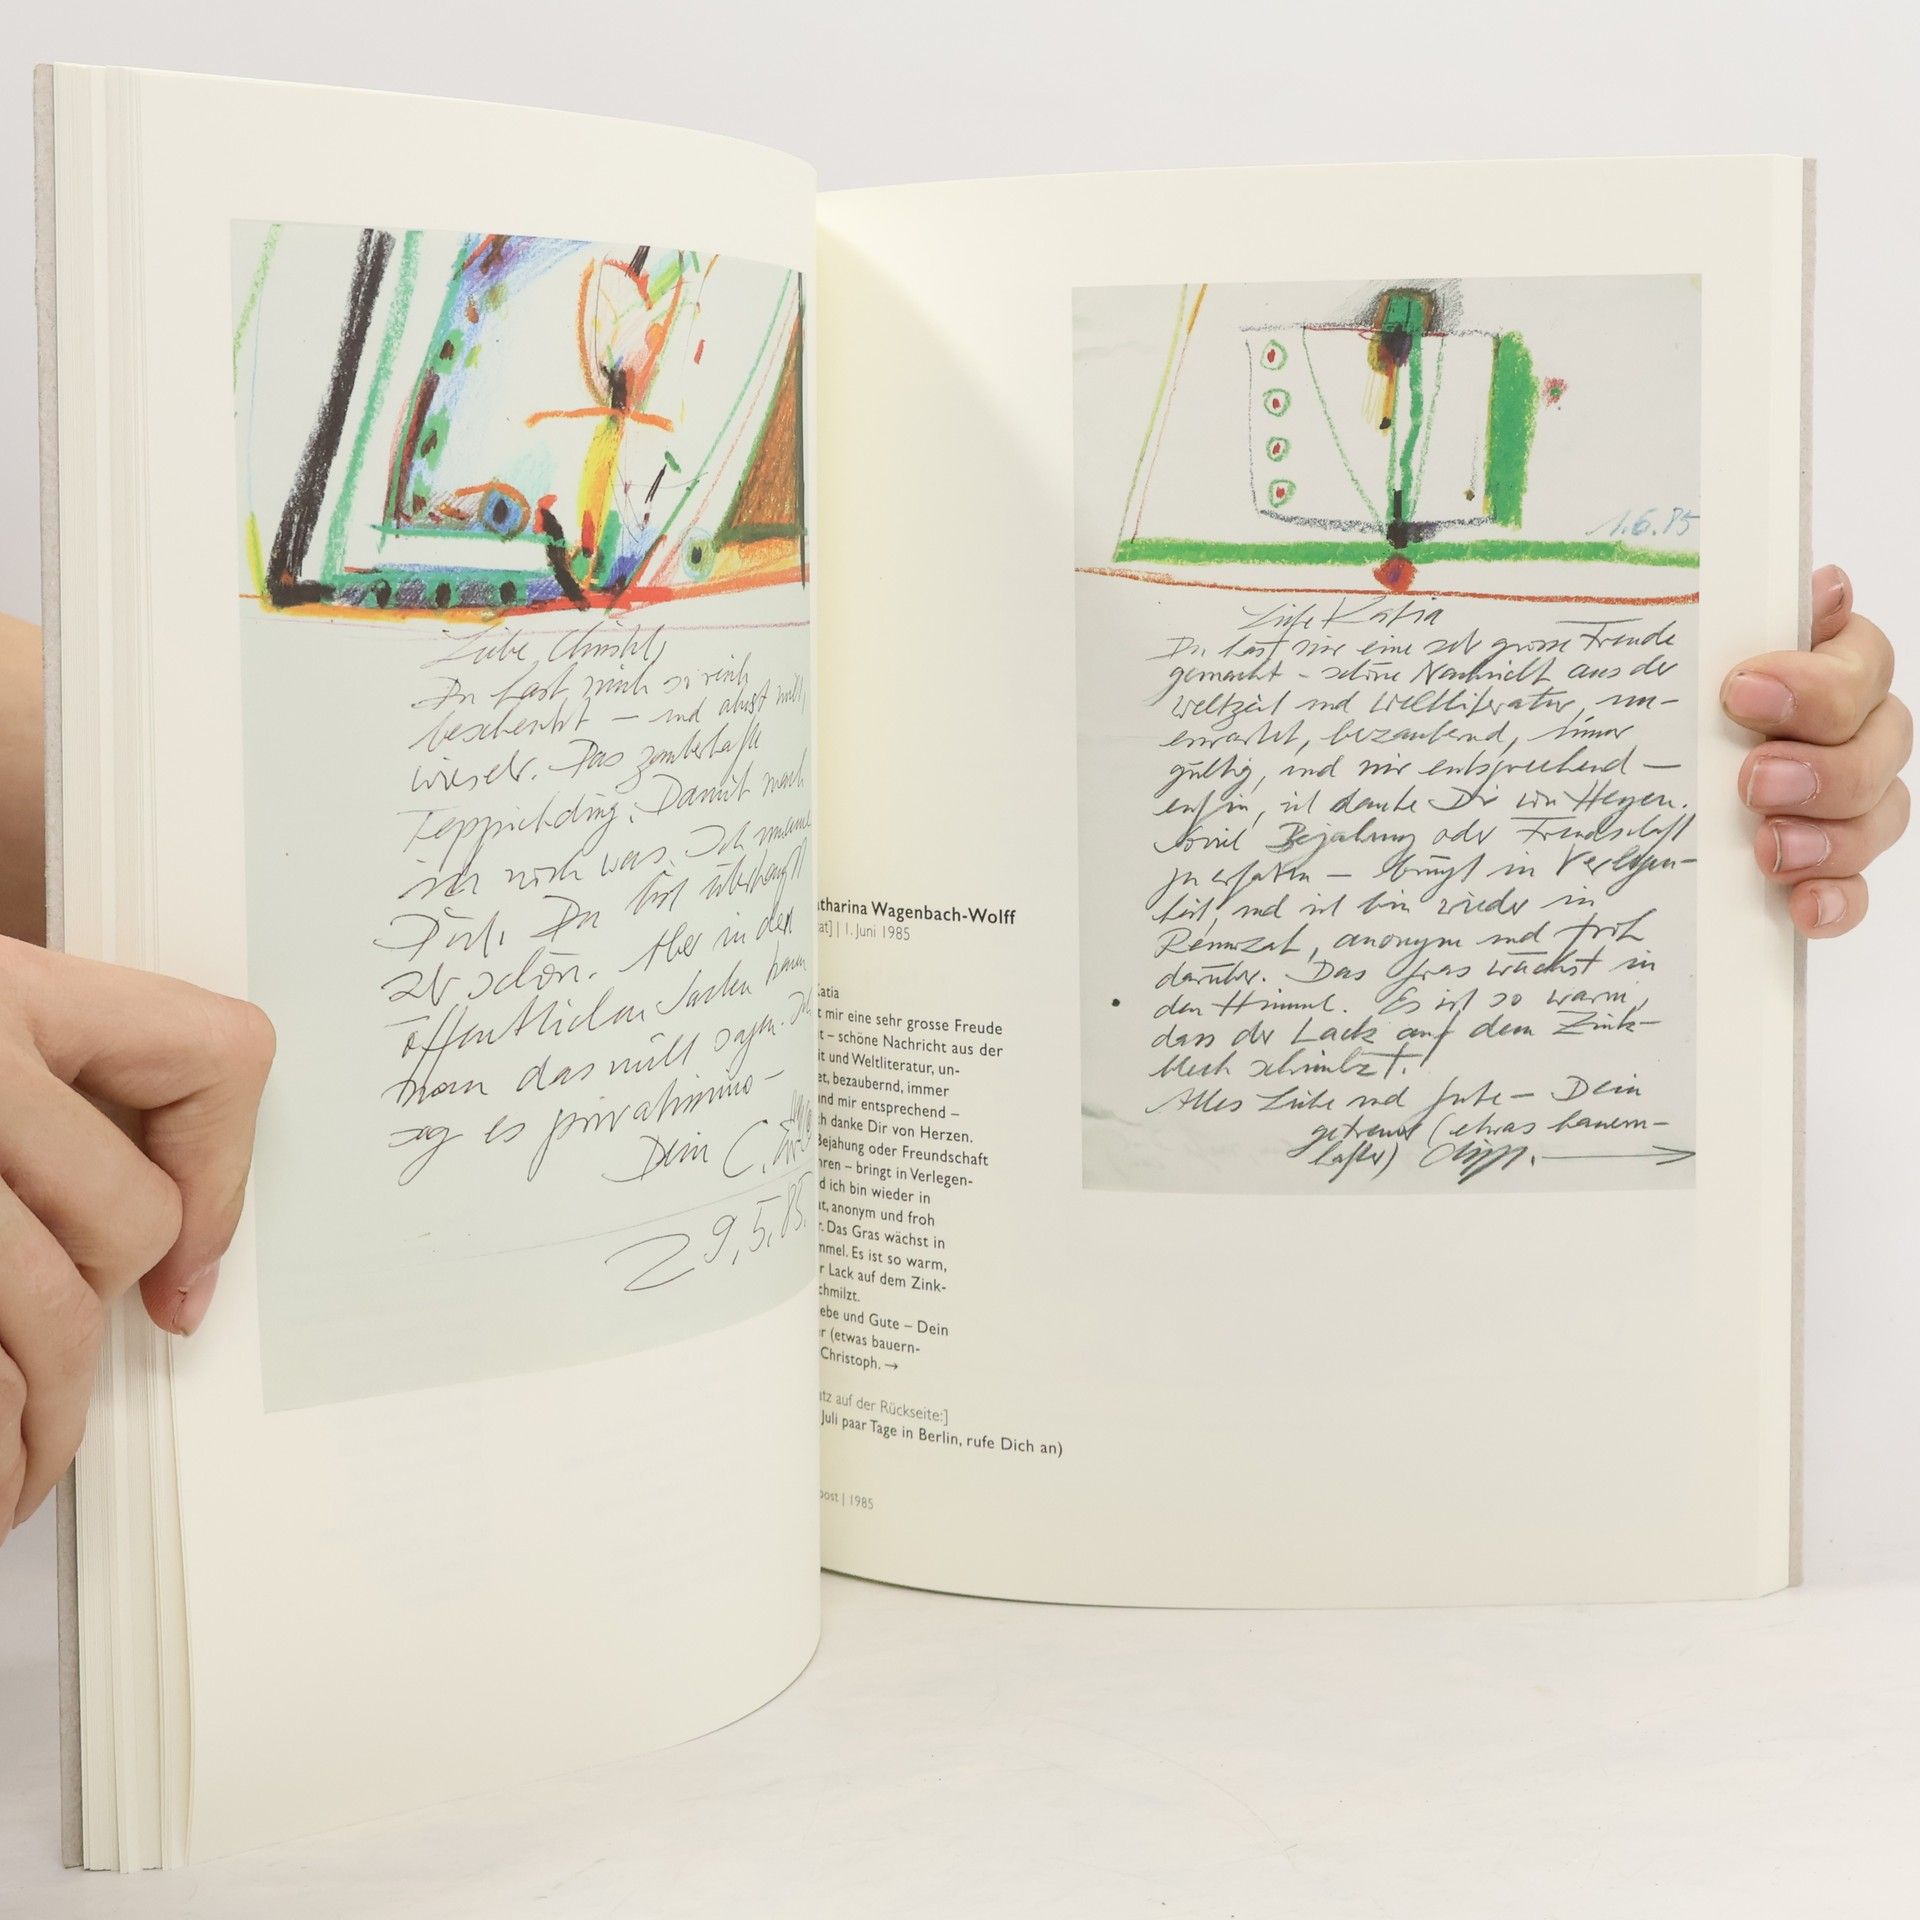 Liebe Christel,
Du hast mich so reich
beschenkt – und ahnst nicht,
wie sehr. Das zauberhafte
Teppichding. Damit mach
ich noch was. Ich umarme
Dich, Du bist überhaupt
sehr schön. Aber in den
öffentlichen Sachen kann
man das nicht sagen. Ich
sag es privatissimo –
Dein C.
29.5.85
atharina Wagenbach-Wolff
at] | 1. Juni 1985
Katia
t mir eine sehr grosse Freude
t – schöne Nachricht aus der
it und Weltliteratur, un-
et, bezaubernd, immer
und mir entsprechend –
ch danke Dir von Herzen.
Bejahung oder Freundschaft
hren – bringt in Verlegen-
d ich bin wieder in
at, anonym und froh
r. Das Gras wächst in
mmel. Es ist so warm,
r Lack auf dem Zink-
chmilzt.
ebe und Gute – Dein
r (etwas bauern-
Christoph. →
atz auf der Rückseite:]
Juli paar Tage in Berlin, rufe Dich an)
post | 1985
1.6.85
Liebe Katia
Du hast mir eine sehr grosse Freude
gemacht – schöne Nachricht aus der
Weltzeit und Weltliteratur, un-
erwartet, bezaubernd, immer
gültig, und mir entsprechend –
enfin, ich danke Dir von Herzen.
Soviel Bejahung oder Freundschaft
zu erfahren – bringt in Verlegen-
heit, und ich bin wieder in
Rennozat, anonym und froh
darüber. Das Gras wächst in
den Himmel. Es ist so warm,
dass der Lack auf dem Zink-
blech schmilzt.
Alles Liebe und Gute – Dein
getreuer (etwas bauern-
hafter) Christoph. →